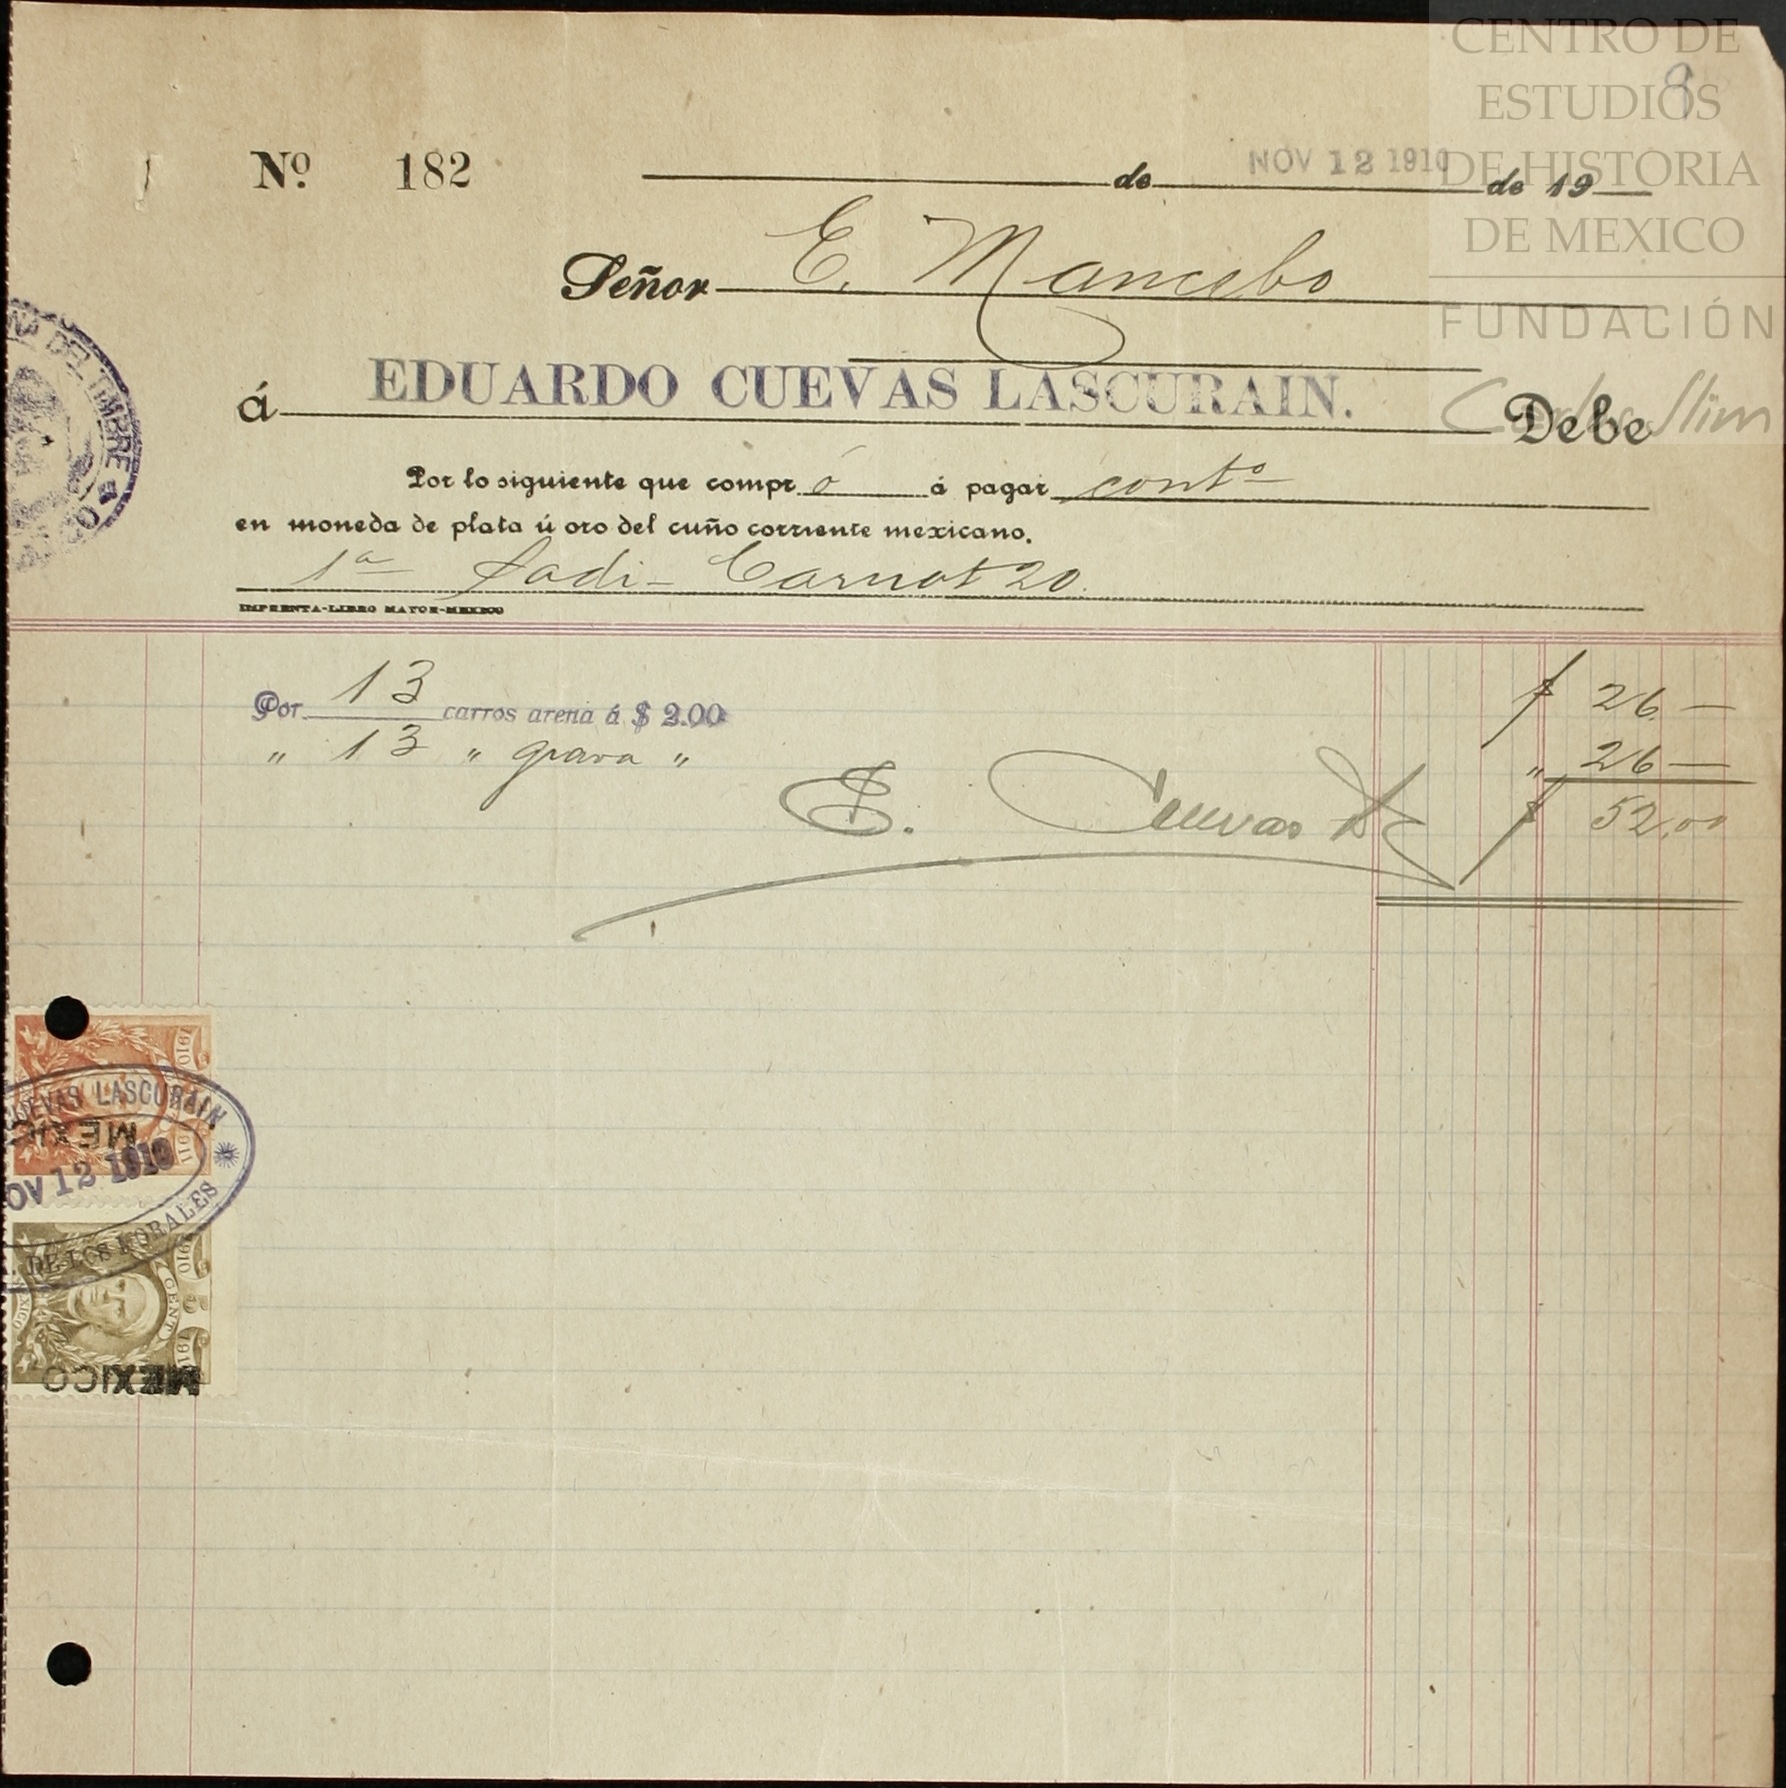 CENTRO DE
ESTUDIOS
DE HISTORIA
DE MEXICO
FUNDACIÓN
Carlos Slim
9
Nº 182 de NOV 12 1910 de 19
Señor E. Mancebo
á EDUARDO CUEVAS LASCURAIN. Debe
Por lo siguiente que compr ó á pagar contº
en moneda de plata ú oro del cuño corriente mexicano.
1ª Sadi-Carnot 20.
IMPRENTA-LIBRO MAYOR-MEXICO
Por 13 carros arena á $ 2.00 $ 26 —
" 13 " grava " " 26 —
E. Cuevas $ 52.00
DEL TIMBRE
1910
CUEVAS LASCURAIN
MEXICO
1911
NOV 12 1910
DE LOS MORALES
1910
CENT
5
MEXICO